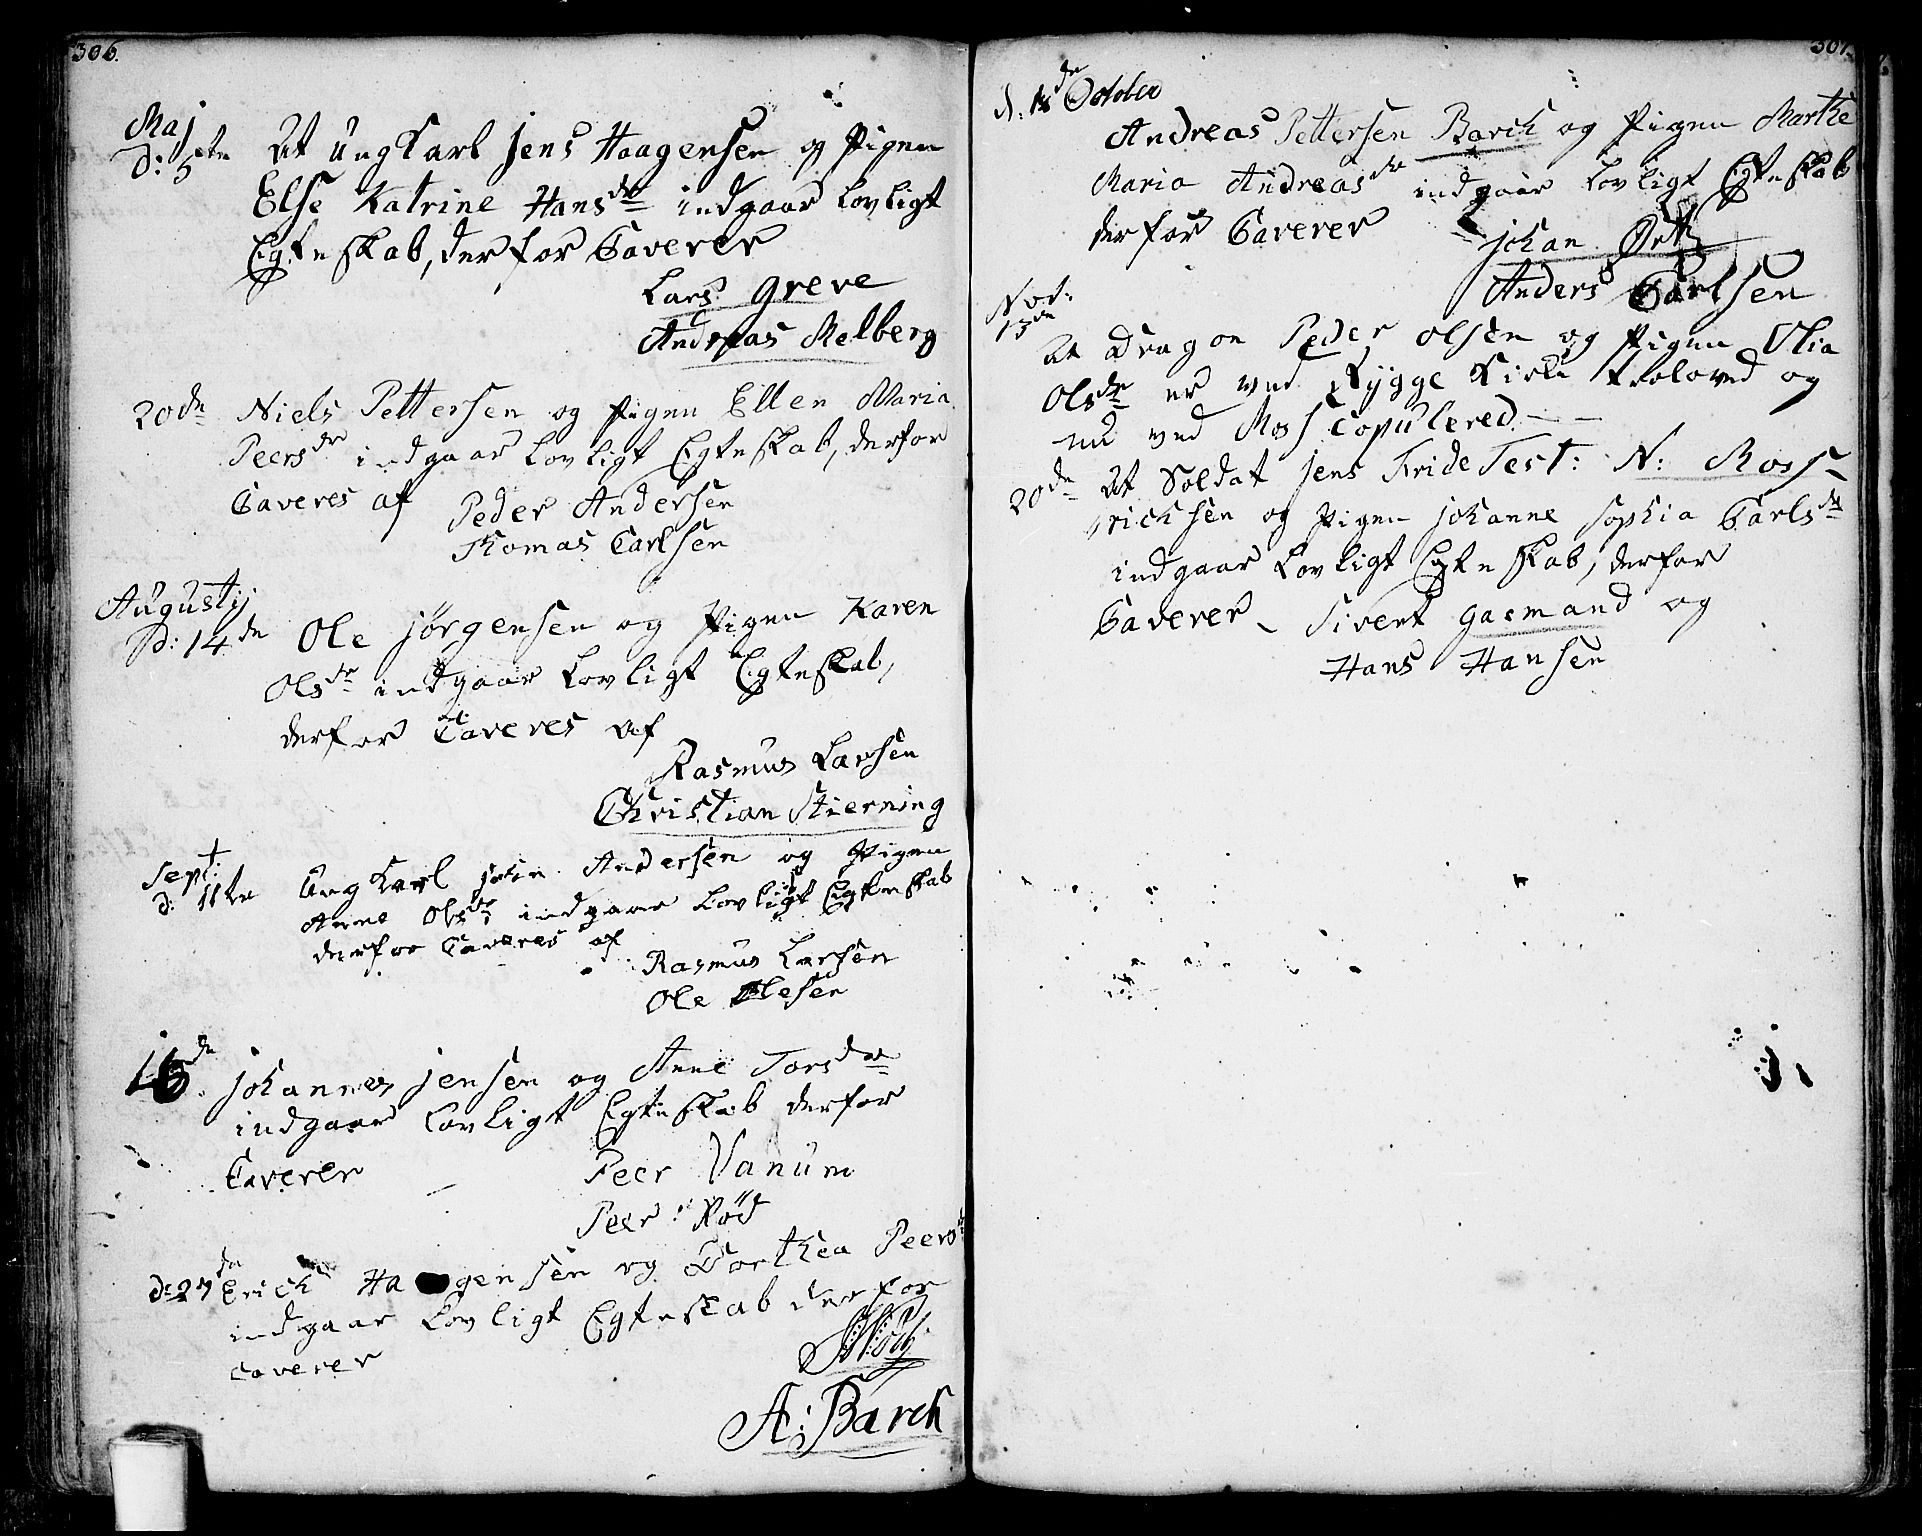 306.
Maj
d: 5te At Ungkarl Jens Haagensen og Pigen
Else Katrine Hansdr indgaar Lovligt
Egteskab, derfor Caverer
Lars Greve
Andreas Melberg
20de Niels Pettersen og Pigen Ellen Maria
Peersdr indgaar Lovligt Egteskab, derfor
Caveres af Peder Andersen
Thomas Carlsen
Augustij
d: 14de Ole Jörgensen og Pigen Karen
Olsdr indgaar Lovligt Egteskab,
derfor Caveres af
Rasmus Larsen
Christian Stierning
Sept:
d: 11te Ungkarl John Andersen og Pigen
Anne Olsdr indgaar Lovligt Egteskab
derfor Caveres af
Rasmus Larsen
Ole Olesen
16de Johannes Jensen og Anne Torsdr
indgaar Lovligt Egteskab derfor
Caverer Peer Vanum
Peer Röd
d: 27de Erick Haagensen og Dorthea Peersdr
indgaar Lovligt Egteskab derfor
caverer
A: Barch
307.
d: 18de October
Andreas Pettersen Barch og Pigen Marthe
Maria Andreasdr indgaar Lovligt Egteskab
derfor Caverer Johan
Anders Carlsen
Nov:
13de
At Dragon Peder Olsen og Pigen Olia
Olsdr er ved Rygge Kirke Troloved og
nu ved Moss Copulered.
20de At Soldat Jens Fride Test: N: Moss
ricksen og Pigen Johanne Sophia Carlsdr
indgaar Lovligt Egteskab, derfor
Caverer Sivert Gasmand og
Hans Hansen